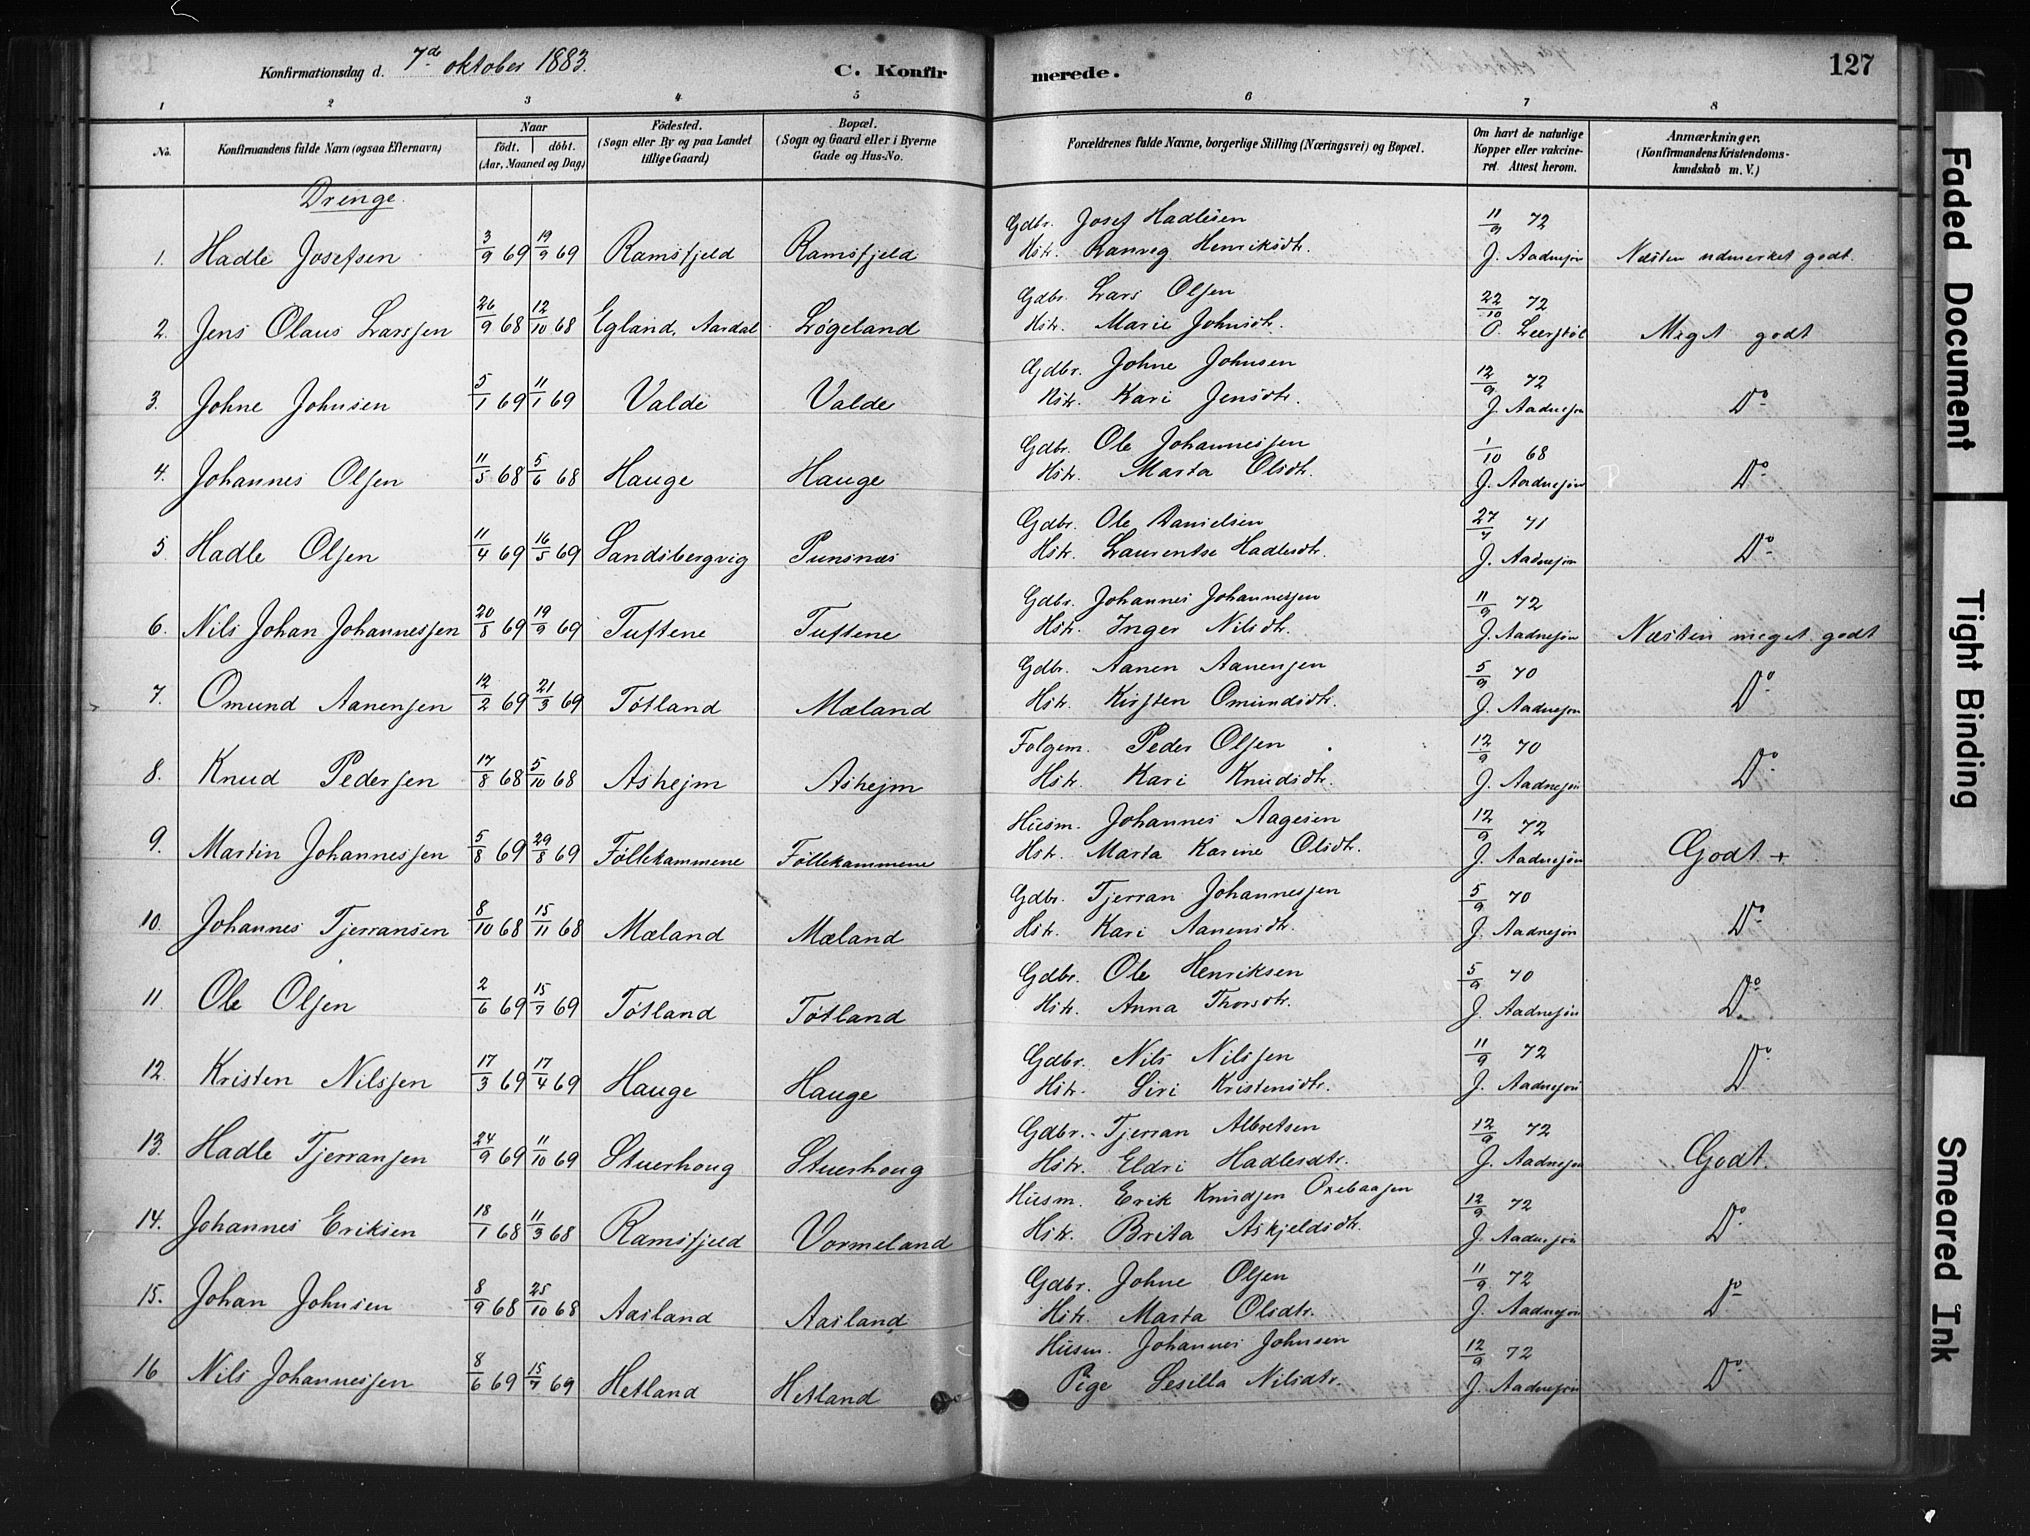 Konfirmationsdag d. 7de oktober 1883. C. Konfirmerede. 127
1 2 3 4 5 6 7 8
No. Konfirmandens fulde Navn (ogsaa Efternavn) Naar født. døbt. (Aar, Maaned og Dag) Fødested. (Sogn eller By og paa Landet tillige Gaard) Bopæl. (Sogn og Gaard eller i Byerne Gade og Hus-No. Forældrenes fulde Navne, borgerlige Stilling (Næringsvei) og Bopæl. Om havt de naturlige Kopper eller vakcineret. Attest herom. Anmærkninger. (Konfirmandens Kristendomskundskab m. V.)
Drenge.
1. Hadle Josefsen 3/9 69 19/9 69 Ramsfjeld Ramsfjeld Gdbr. Josef Hadlesen 11/9 72
Hstr. Ranveg Henriksdtr. J. Aadnesøn Næsten udmerket godt.
2. Jens Olaus Larssen 26/9 68 12/10 68 Egland, Aardal Løgeland Gdbr. Lars Olsen 22/10 72
Hstr. Marie Johnsdtr. O. Meget godt
3. Johne Johnsen 5/1 69 11/1 69 Valde Valde Gdbr. Johne Johnsen 12/9 72
Hstr. Kari Jensdtr. J. Aadnesøn Do
4. Johannes Olsen 11/5 68 5/6 68 Hauge Hauge Gdbr. Ole Johannessen 1/10 68
Hstr. Marta Olsdtr. J. Aadnesøn Do
5. Hadle Olsen 11/4 69 16/5 69 Sandsbergvig Punsnæs Gdbr. Ole Danielsen 27/7 71
Hstr. Laurentse Hadlesdtr. J. Aadnesøn Do
6. Nils Johan Johannessen 20/8 69 19/9 69 Tuftene Tuftene Gdbr. Johannes Johannessen 11/9 72
Hstr. Inger Nilsdtr. J. Aadnesøn Næsten meget godt
7. Omund Aanensen 12/2 69 21/3 69 Tøtland Mæland Gdbr. Aanen Aanensen 5/9 70
Hstr. Kirsten Omundsdtr. J. Aadnesøn Do
8. Knud Pedersen 17/8 68 5/10 68 Ashejm Ashejm Folgem. Peder Olsen 12/9 70
Hstr. Kari Knudsdtr. J. Aadnesøn Do
9. Martin Johannessen 5/8 69 29/8 69 Føllekammene Føllekammene Husm. Johannes Aagesen 12/9 72
Hstr. Marta Karine Olsdtr. J. Aadnesøn Godt +
10. Johannes Tjerransen 8/10 68 15/11 68 Mæland Mæland Gdbr. Tjerran Johannessen 5/9 70
Hstr. Kari Aanensdtr. J. Aadnesøn Do
11. Ole Olsen 2/6 69 15/7 69 Tøtland Tøtland Gdbr. Ole Henriksen 5/9 70
Hstr. Anna Thorsdtr. J. Aadnesøn Do
12. Kristen Nilssen 17/3 69 17/4 69 Hauge Hauge Gdbr. Nils Nilssen 11/9 72
Hstr. Siri Kristensdtr. J. Aadnesøn Do
13. Hadle Tjerransen 24/9 69 11/10 69 Stuerhoug Stuerhoug Gdbr. Tjerran Albretsen 12/9 72
Hstr. Eldri Hadlesdtr. J. Aadnesøn Godt.
14. Johannes Eriksen 18/1 68 11/3 68 Ramsfjeld Vormeland Husm. Erik Knudsen Oxebaasen 12/9 72
Hstr. Brita Askjeldsdtr. J. Aadnesøn Do
15. Johan Johnsen 8/9 68 25/10 68 Aasland Aasland Gdbr. Johne Olsen 11/9 72
Hstr. Marta Olsdtr. J. Aadnesøn Do
16 Nils Johannessen 8/6 69 15/7 69 Hetland Hetland Husm. Johannes Johnsen 12/9 72
Pige Sesilla Nilsdtr. J. Aadnesøn Do
Faded Document
Tight Binding
Smeared Ink